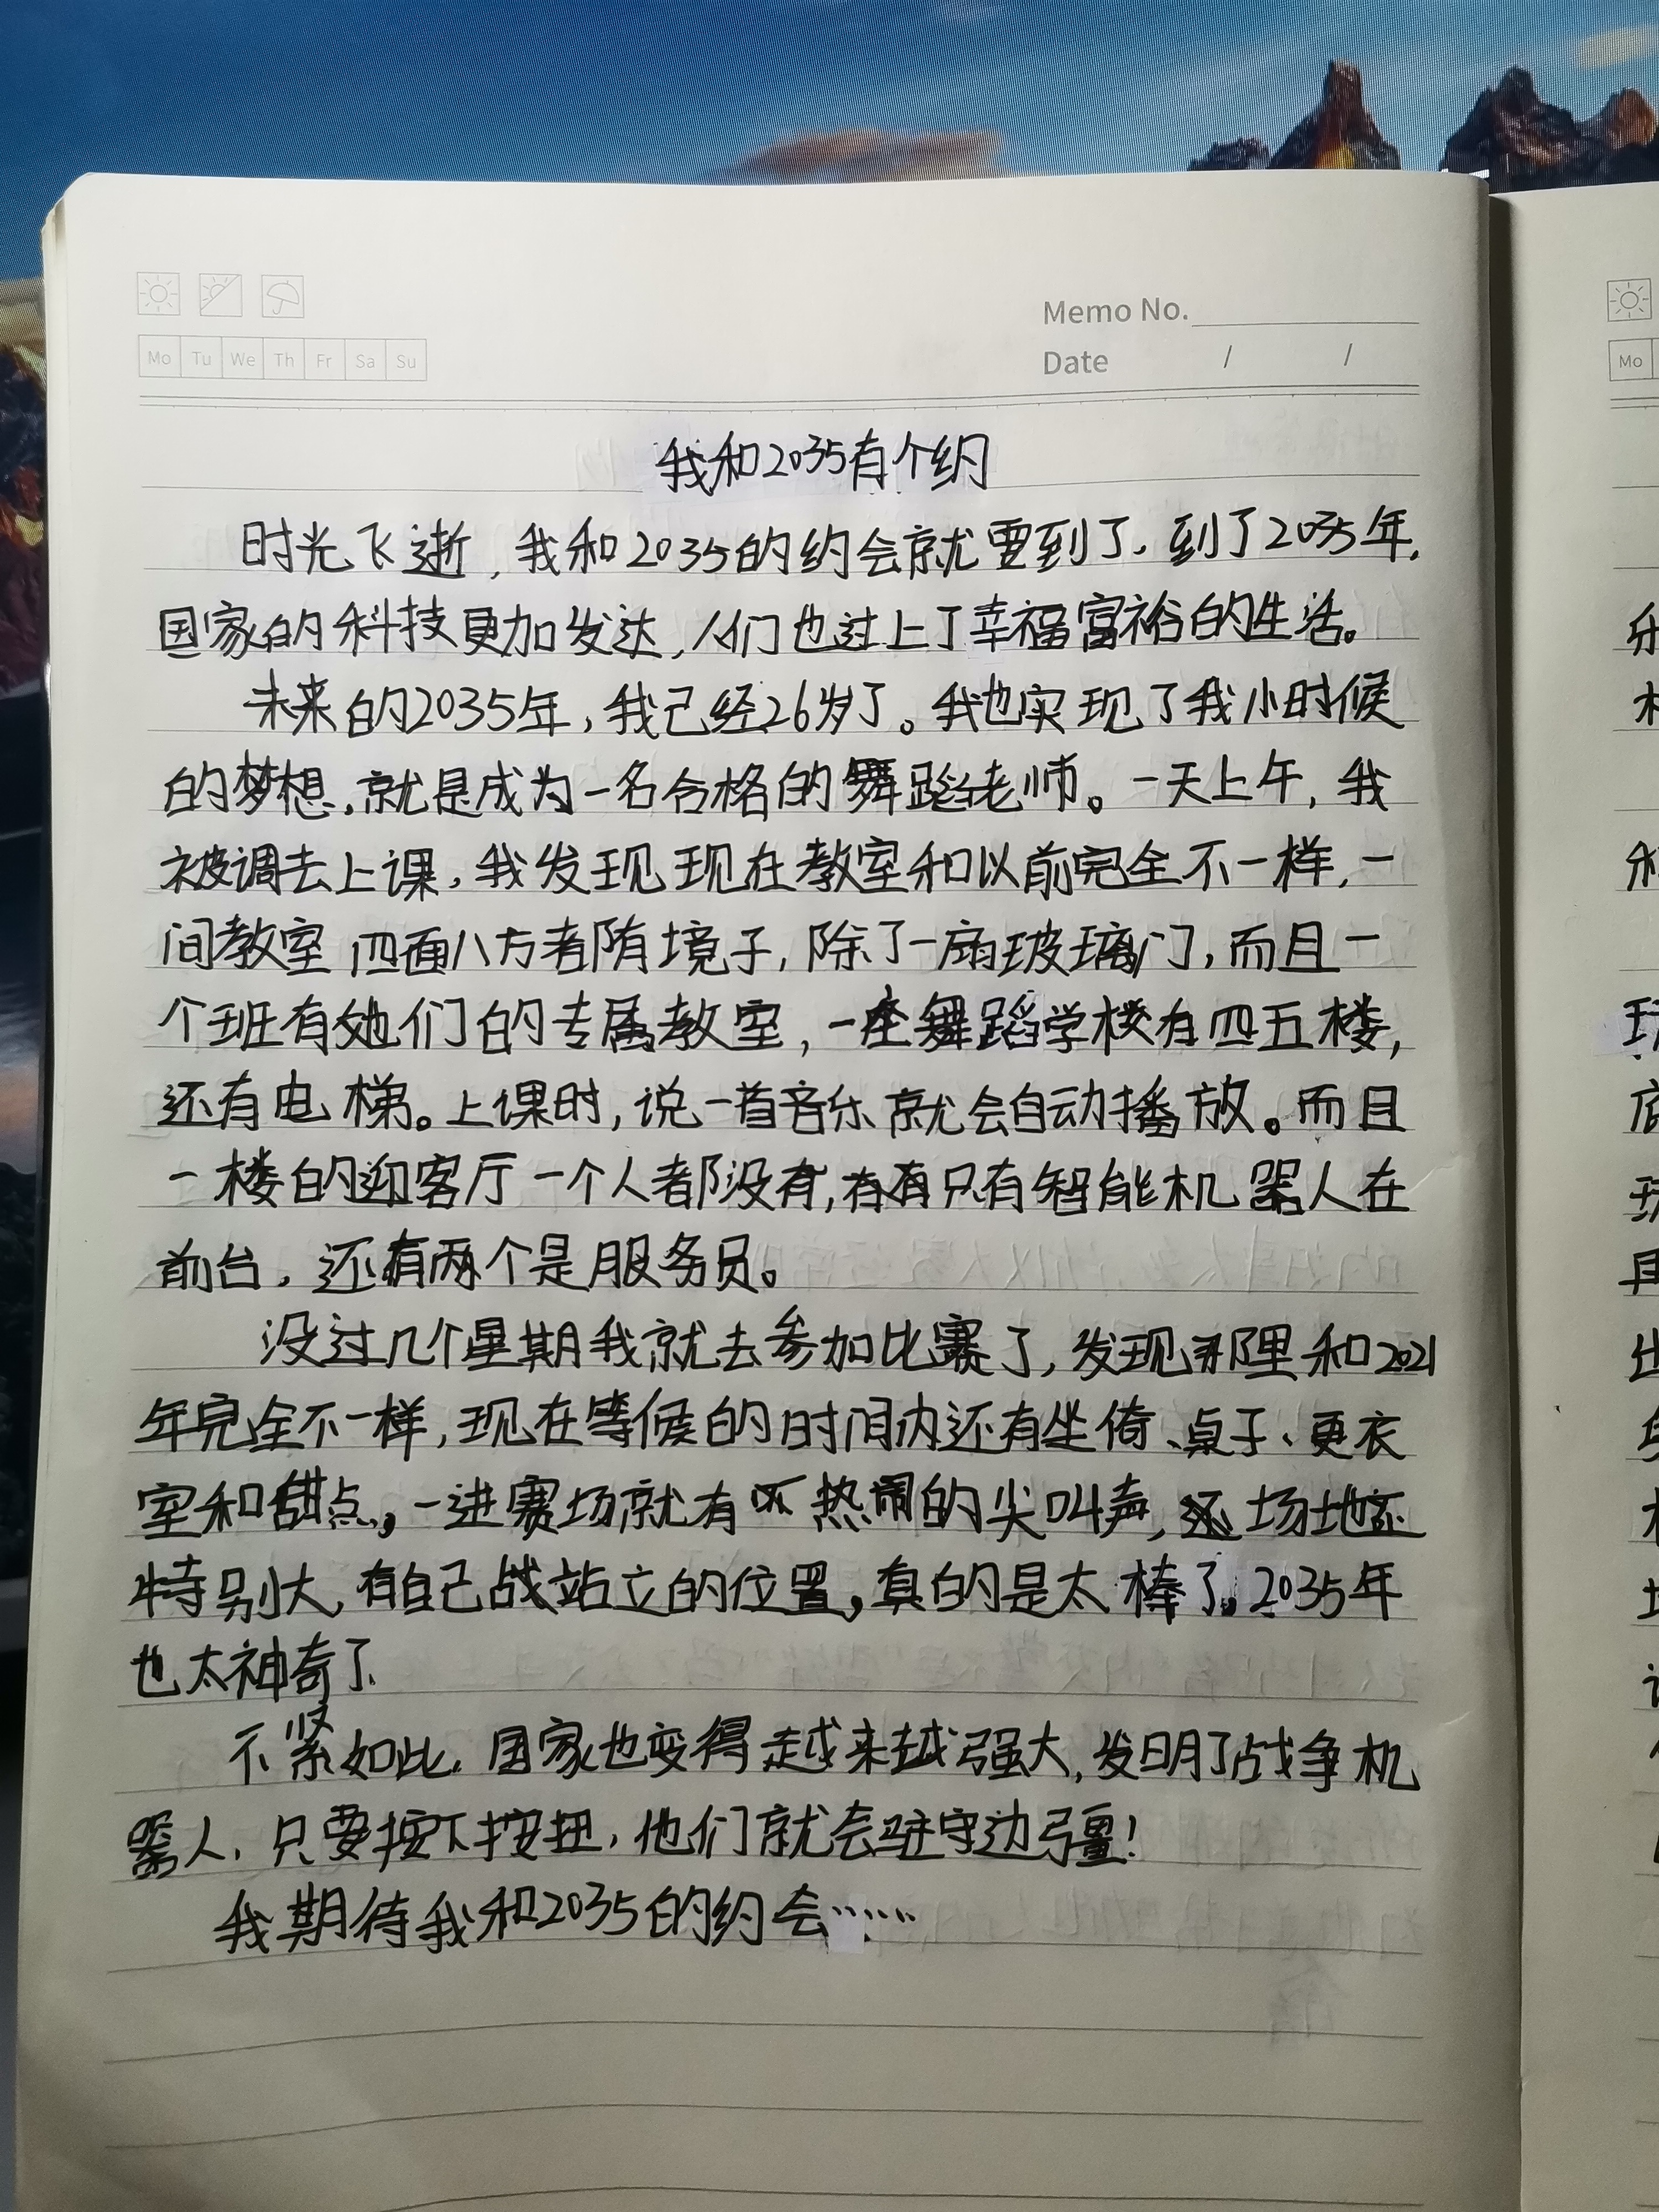 Memo No.
Mo Tu We Th Fr Sa Su
Date / /
我和2035有个约
时光飞逝，我和2035的约会就要到了。到了2035年，
国家的科技更加发达，人们也过上了幸福富裕的生活。
未来的2035年，我己经26岁了。我也实现了我小时候
的梦想，就是成为一名合格的舞蹈老师。一天上午，我
被调去上课，我发现现在教室和以前完全不一样，一
间教室四面八方者陏境子，除了一扇玻璃门，而且一
个班有她们的专属教室，一座舞蹈学校有四五楼，
还有电梯。上课时，说一首音乐就会自动播放。而且
一楼的迎客厅一个人都没有，有有只有智能机器人在
前台，还有两个是服务员。
没过几个星期我就去参加比赛了，发现那里和2021
年完全不一样，现在等候的时间内还有坐倚、桌子、更衣
室和甜点，一进赛场就有热闹的尖叫声，场地还
特别大，有自己战站立的位置，真的是太棒了。2035年
也太神奇了
不紧如此，国家也变得越来越强大，发明了战争机
器人，只要按下按扭，他们就会驻守边彊！
我期待我和2035的约会……
Mo